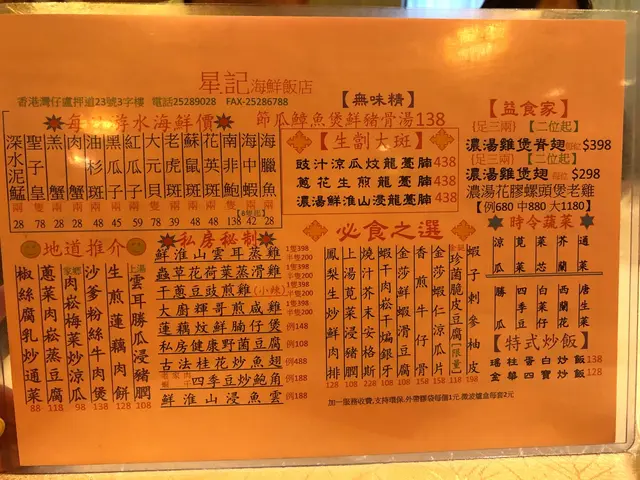 星記海鮮飯店
香港灣仔盧押道23號3字樓 電話25289028 FAX-25286788
【無味精】
節瓜鱆魚煲鮮豬骨湯138
海鮮價
深水泥鯭 兩 28
聖子皇 隻 28
羔蟹 兩
肉蟹 兩
油杉斑 兩
黑瓜子 兩
大元貝 隻
老虎斑 兩
蘇鼠斑 兩
花英斑 兩
南非鮑 隻 138
海中蝦 兩
海臘魚 兩 28
【生劏大斑】
豉汁涼瓜炆龍躉腩438
蔥花生煎龍躉腩438
濃湯鮮淮山浸龍躉腩438
【益食家】
{足三兩} 【二位起】
濃湯雞煲脊翅 每位 $398
{足三兩} 【二位起】
濃湯雞煲翅 每位 $298
濃湯花膠螺頭煲老雞
【例680 中880 大1180】
地道推介
椒絲腐乳炒通菜 88
蔥菜肉崧蒸豆腐 118
肉崧梅菜炒涼瓜 98
沙爹粉絲牛肉煲 138
生煎蓮藕肉餅 128
上湯雲耳勝瓜浸豬膶 108
私房秘制
鮮淮山雲耳蒸雞 1隻398 半隻200
蟲草花荷葉蒸滑雞 1隻398 半隻200
干蔥豆豉煎雞(小辣) 1隻398 半隻200
大廚輝哥煎咸雞 1隻398 半隻200
蓮藕炆鮮腩仔煲 例148
私房健康野菌豆腐 例108
古法桂花炒魚翅 例488
四季豆炒鮑角 例188
鮮淮山浸魚雲 例188
必食之選
鳳梨生炒鮮肉排 128
上湯莧菜浸豬膶 108
燒汁芥末安格斯 228
蝦干肉崧干煸銀牙 108
金莎鮮蝦滑豆腐 108
香煎鮮魷 108
金莎蝦仁涼瓜片 158
珍菌脆皮豆腐【限量】 118
蝦子刺參柚皮 198
時令蔬菜
涼瓜
莧菜
芥蘭
通菜
勝瓜
四季豆
白菜仔
西蘭花
唐生菜
【特式炒飯】
瑤柱蛋白炒飯138
金華四寶炒飯128
加一服務收費,支持環保,外帶膠袋每個1元.微波爐盒每套2元